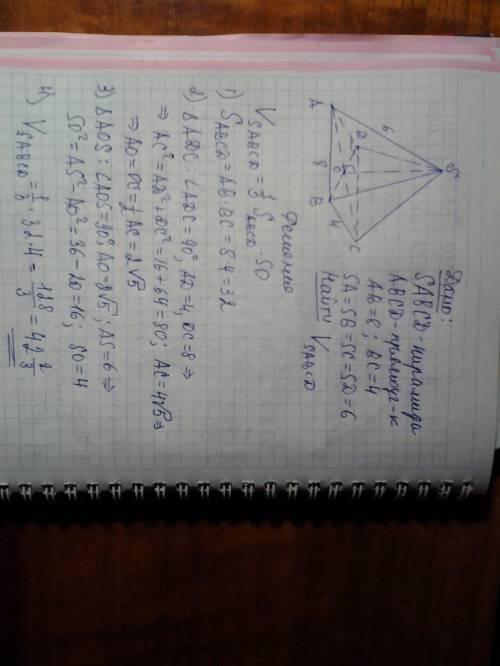 Дано:
SABCD - пирамида
ABCD - прямоуг-к
AB=8; BC=4
SA=SB=SC=SD=6
Найти V SABCD
S
6
A
D
O
8
B
4
C
Решение
V SABCD = 1/3 S ABCD · SO
1) S ABCD = AB·BC = 8·4 = 32
2) ΔADC: ∠ADC=90°, AD=4, DC=8 ⇒
⇒ AC² = AD² + DC² = 16+64 = 80; AC=4√5 ⇒
⇒ AO=OC=1/2 AC = 2√5
3) ΔAOS: ∠AOS=90°; AO=2√5; AS=6 ⇒
SO² = AS² - AO² = 36-20=16; SO=4
4) V SABCD = 1/3 · 32·4 = 128/3 = 42 2/3